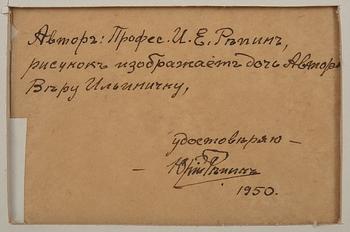 Авторъ: Профес. И. Е. Рѣпинъ,
рисунокъ изображаетъ дочь Автора
Вѣру Ильиничну,
удостовѣряю —
— Юрій Рѣпинъ
1950.